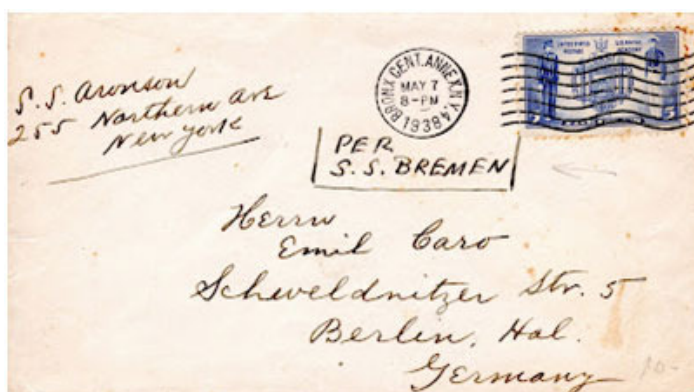 S. S. Aronson
255 Northern Ave
New York
BRONX CENT. ANNEX. N.Y. 4
MAY 7
8-PM
1938
PER
S. S. BREMEN
Herrn
Emil Caro
Scheveldnitzer Str. 5
Berlin, Hal.
Germany